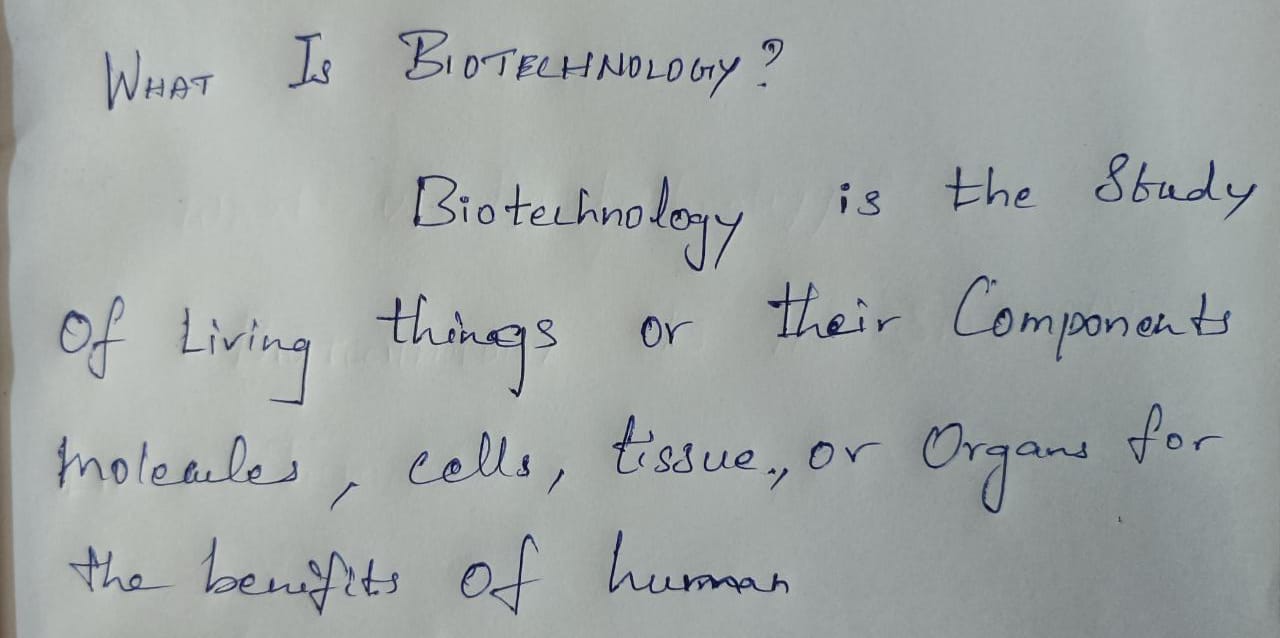 WHAT Is BIOTECHNOLOGY?
Biotechnology is the Study
Of Living things or their Components
molecules, cells, tissue., or Organs for
the benifits of human